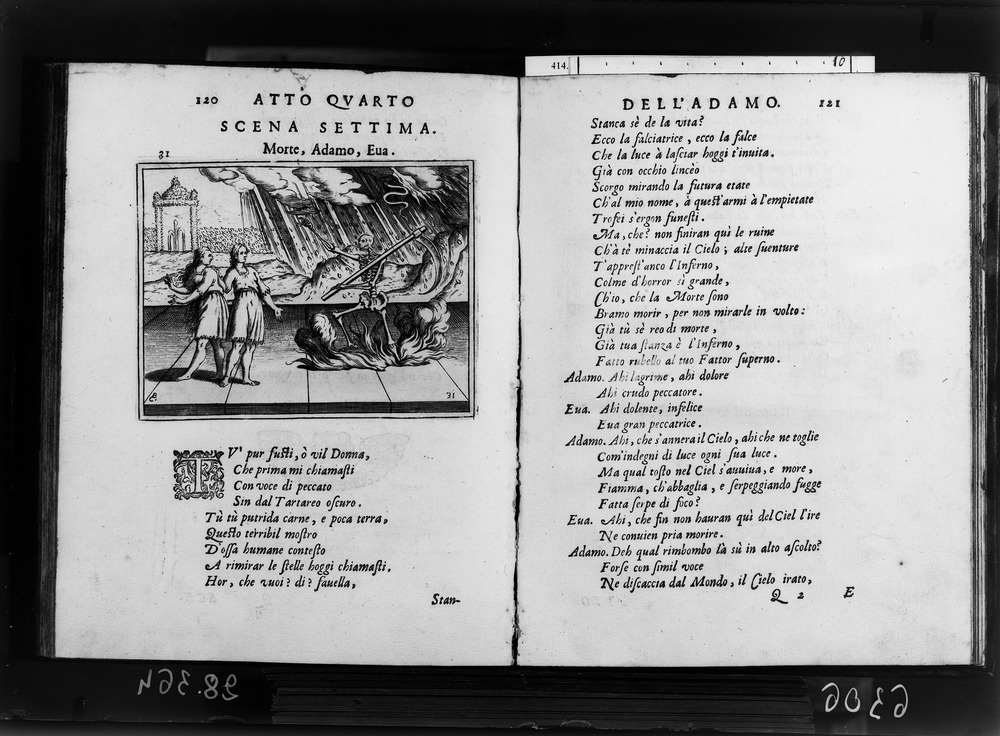 414.
10
120 ATTO QVARTO
SCENA SETTIMA.
Morte, Adamo, Eua.
31
31
TV' pur fusti, ò vil Donna,
Che prima mi chiamasti
Con voce di peccato
Sin dal Tartareo oscuro.
Tù tù putrida carne, e poca terra,
Questo terribil mostro
D'ossa humane contesto
A rimirar le stelle hoggi chiamasti.
Hor, che vuoi? di? fauella,
Stan-
DELL'ADAMO. 121
Stanca sè de la vita?
Ecco la falciatrice, ecco la falce
Che la luce à lasciar hoggi t'inuita.
Già con occhio lincèo
Scorgo mirando la futura etate
Ch'al mio nome, a quest'armi à l'empietate
Trofei s'ergon funesti.
Ma, che? non finiran quì le ruine
Ch'à tè minaccia il Cielo; alte suenture
T'apprest'anco l'Inferno,
Colme d'horror sì grande,
Ch'io, che la Morte sono
Bramo morir, per non mirarle in volto:
Già tù sè reo di morte,
Già tua stanza è l'Inferno,
Fatto rubello al tuo Fattor superno.
Adamo. Ahi lagrime, ahi dolore
Ahi crudo peccatore.
Eua. Ahi dolente, infelice
Eua gran peccatrice.
Adamo. Ahi, che s'annera il Cielo, ahi che ne toglie
Com'indegni di luce ogni sua luce.
Ma qual tosto nel Ciel s'auuiua, e more,
Fiamma, ch'abbaglia, e serpeggiando fugge
Fatta serpe di foco?
Eua. Ahi, che fin non hauran quì del Ciel l'ire
Ne conuien pria morire.
Adamo. Deh qual rimbombo là sù in alto ascolto?
Forse con simil voce
Ne discaccia dal Mondo, il Cielo irato,
Q 2 E
28.364
6306